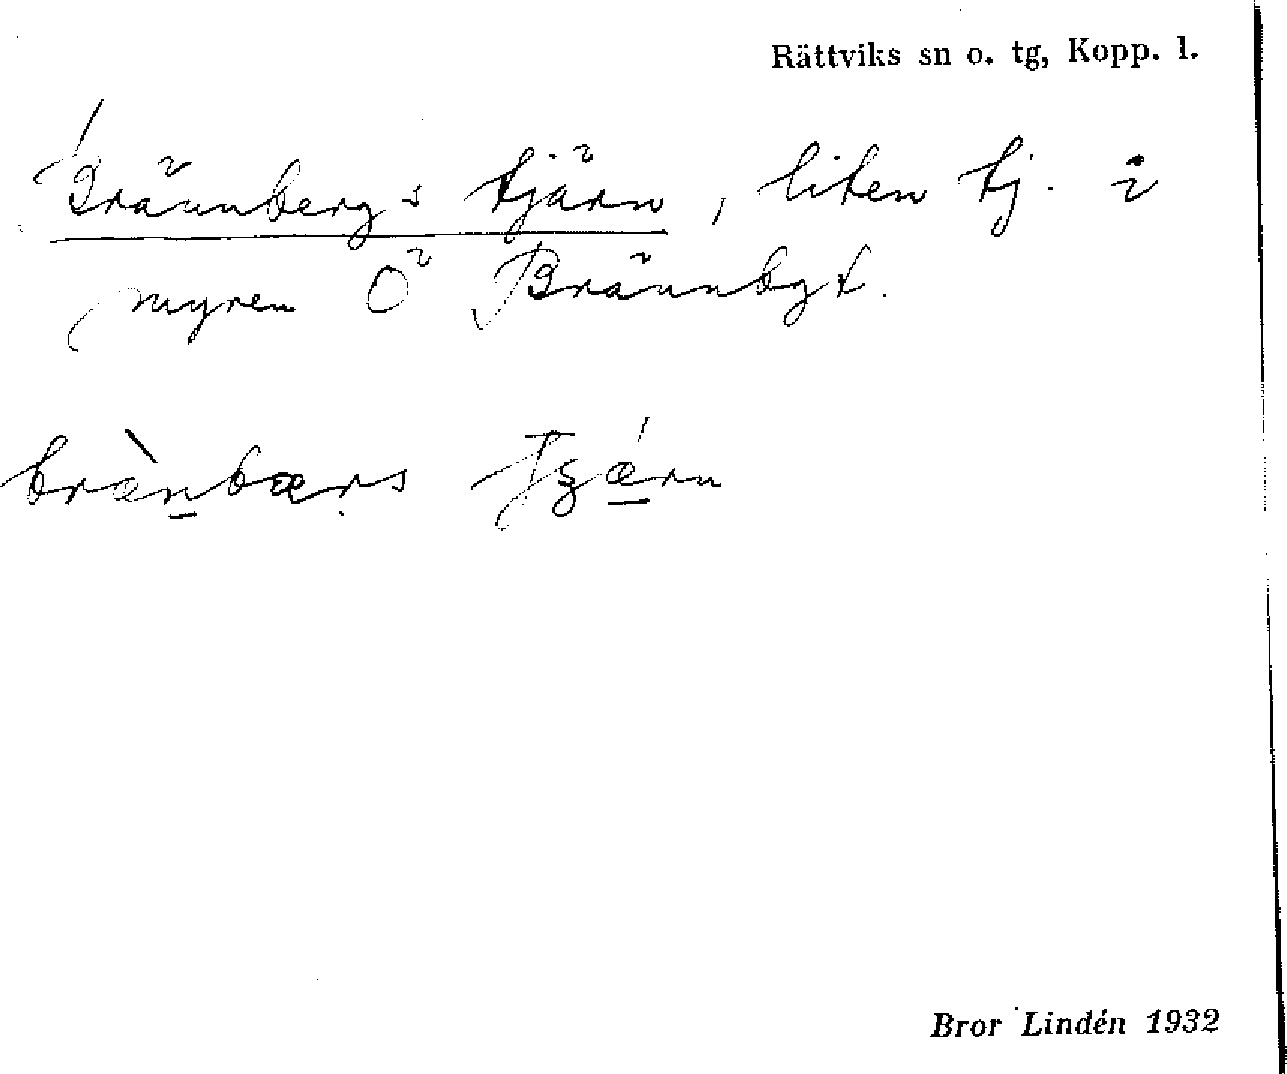 Rättviks sn o. tg, Kopp. l.
Brännbergs tjärn, liten tj. i
myren Ö Brännbgt.
brànbærs tjǽrn
Bror Lindén 1932